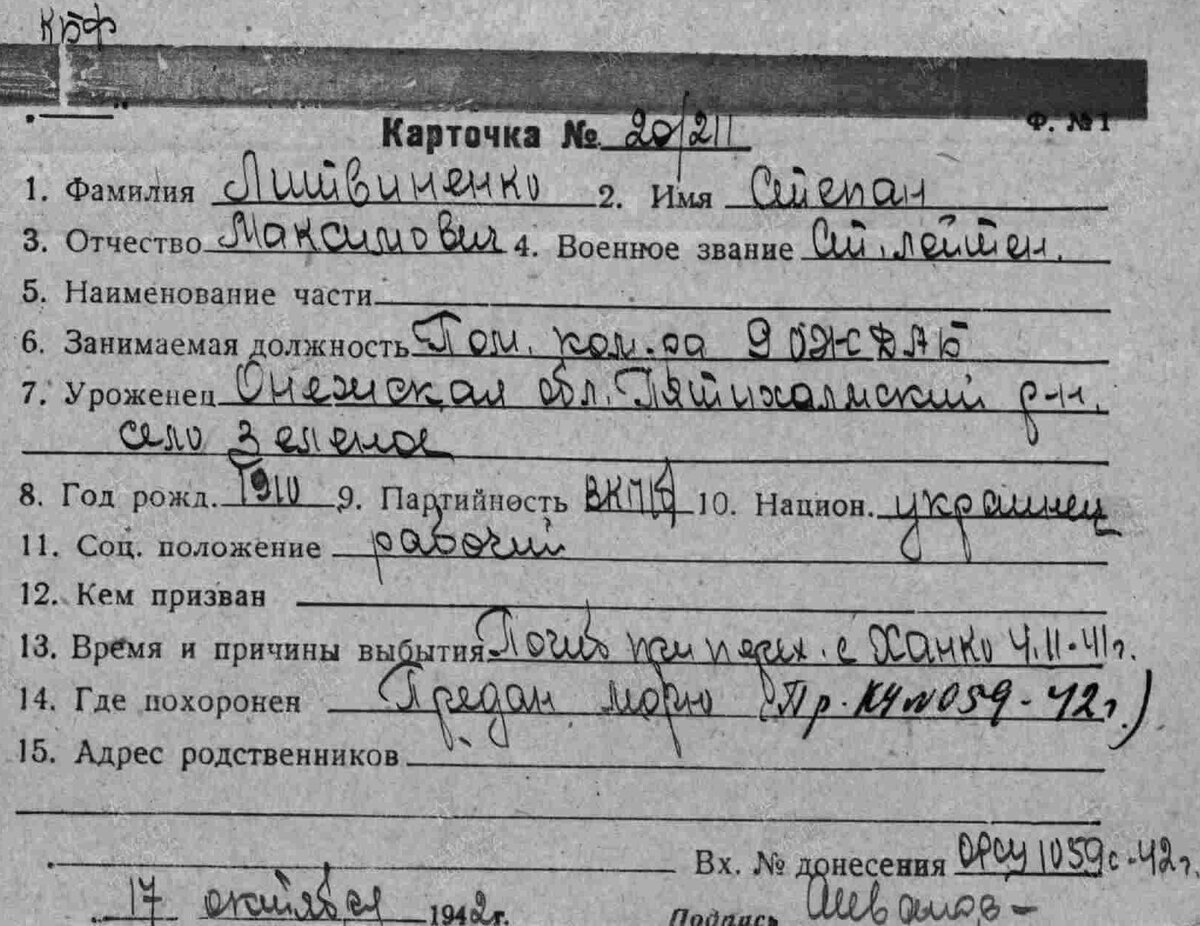 КБФ
Ф. №1
Карточка № 20/211
1. Фамилия Литвиненко 2. Имя Степан
3. Отчество Максимович 4. Военное звание Ст. лейтен.
5. Наименование части
6. Занимаемая должность Пом. ком-ра 9 ОЖДАБ
7. Уроженец Онежская обл. Пятихалмский р-н.
село Зеленое
8. Год рожд. 1910 9. Партийность ВКП(б) 10. Национ. украинец
11. Соц. положение рабочий
12. Кем призван
13. Время и причины выбытия Погиб при перех. с Ханко 4.11.41г.
14. Где похоронен Предан морю (Пр. №059-42г.)
15. Адрес родственников
Вх. № донесения ОРСУ 1059с-42г.
17 октября 1942г. Подпись